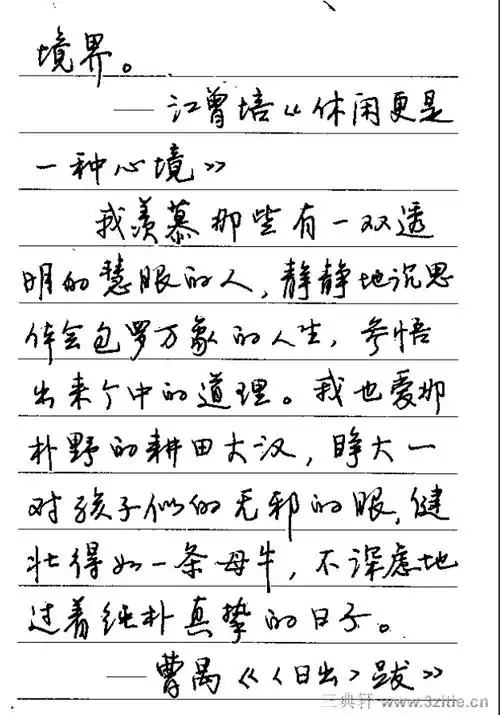 境界。
——江曾培《休闲更是
一种心境》
我羡慕那些有一双透
明的慧眼的人,静静地沉思
体会包罗万象的人生,参悟
出来个中的道理。我也爱那
朴野的耕田大汉,睁大一
对孩子似的无邪的眼,健
壮得如一条母牛,不深虑地
过着纯朴真挚的日子。
——曹禺《〈日出〉跋》
三典轩 www.3zitie.cn